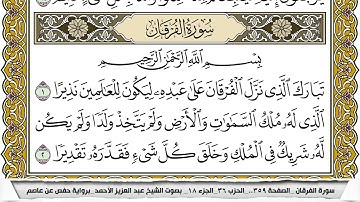 سُورَةُ الفُرْقَانِ
بِسْمِ اللَّهِ الرَّحْمَٰنِ الرَّحِيمِ
تَبَارَكَ الَّذِي نَزَّلَ الْفُرْقَانَ عَلَىٰ عَبْدِهِ لِيَكُونَ لِلْعَالَمِينَ نَذِيرًا ١
الَّذِي لَهُ مُلْكُ السَّمَاوَاتِ وَالْأَرْضِ وَلَمْ يَتَّخِذْ وَلَدًا وَلَمْ يَكُن
لَّهُ شَرِيكٌ فِي الْمُلْكِ وَخَلَقَ كُلَّ شَيْءٍ فَقَدَّرَهُ تَقْدِيرًا ٢
سورة الفرقان _الصفحة ٣٥٩_ الحزب ٣٦_الجزء ١٨_ بصوت الشيخ عبد العزيز الأحمد_برواية حفص عن عاصم